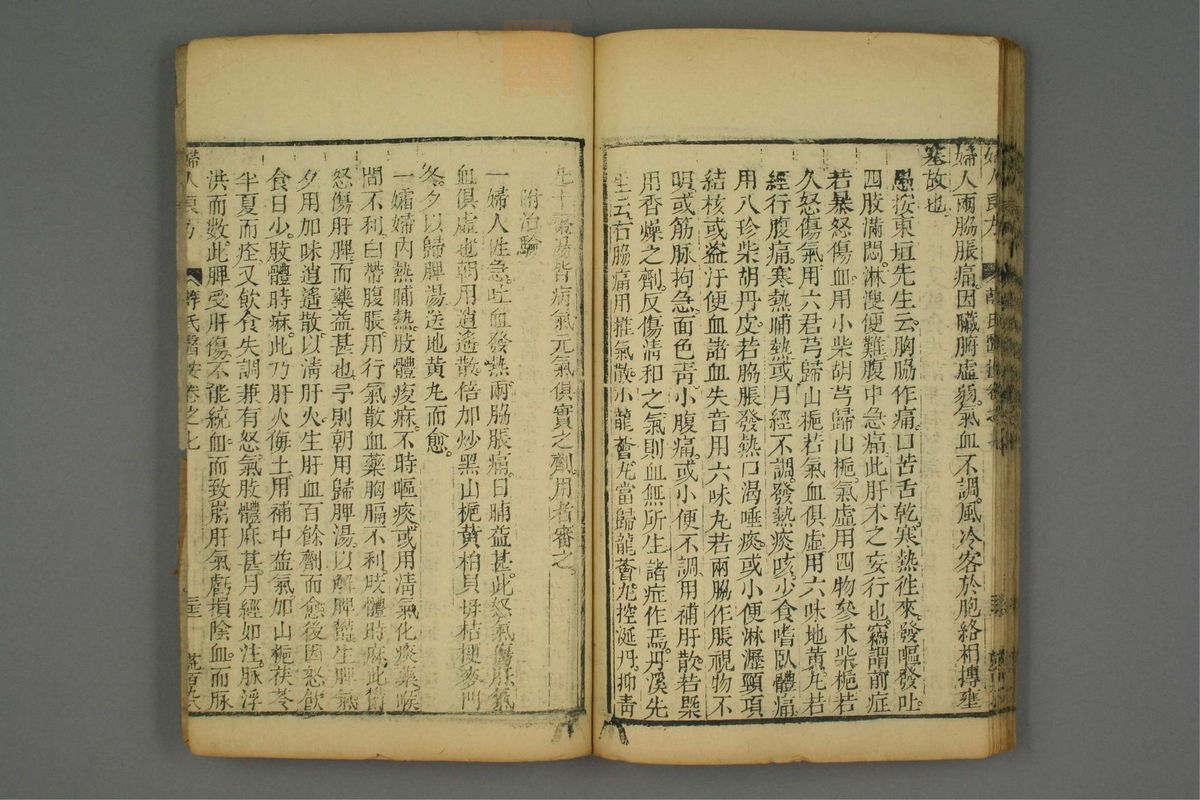 婦人良方 薛氏醫按卷之七
婦人兩脇脹痛因臟腑虛弱氣血不調風冷客於胞絡相搏壅
塞故也
愚按東垣先生云胸脇作痛口苦舌乾寒熱往來發嘔發吐
四肢滿悶淋溲便難腹中急痛此肝木之妄行也竊謂前症
若暴怒傷血用小柴胡芎歸山梔氣虛用四物參术柴梔若
久怒傷氣用六君芎歸山梔若氣血俱虛用六味地黃丸若
經行腹痛寒熱晡熱或月經不調發熱痰咳少食嗜臥體痛
用八珍柴胡丹皮若脇脹發熱口渴唾痰或小便淋瀝頸項
結核或盗汗便血諸血失音用六味丸若兩脇作脹視物不
明或筋脉拘急面色靑小腹痛或小便不調用補肝散若槩
用香燥之劑反傷淸和之氣則血無所生諸症作焉丹溪先
生云右脇痛用推氣散小龍薈丸當歸龍薈丸控涎丹抑靑
丸十棗湯皆病氣元氣俱實之劑用者審之
附治驗
一婦人性急吐血發熱兩脇脹痛日晡益甚此怒氣傷肝氣
血俱虛也朝用逍遙散倍加炒黑山梔黃柏貝母桔梗麥門
冬夕以歸脾湯送地黃丸而愈
一孀婦內熱晡熱肢體痠麻不時嘔痰或用淸氣化痰藥喉
間不利白帶腹脹用行氣散血藥胸膈不利肢體時麻此鬱
怒傷肝脾而藥益甚也予則朝用歸脾湯以解脾鬱生脾氣
夕用加味逍遙散以淸肝火生肝血百餘劑而愈後因怒飲
食日少肢體時麻此乃肝火侮土用補中益氣加山梔茯苓
半夏而痊又飲食失調兼有怒氣肢體麻甚月經如注脉浮
洪而數此脾受肝傷不能統血而致崩肝氣虧損陰血而脉
婦人良方 薛氏醫按卷之七